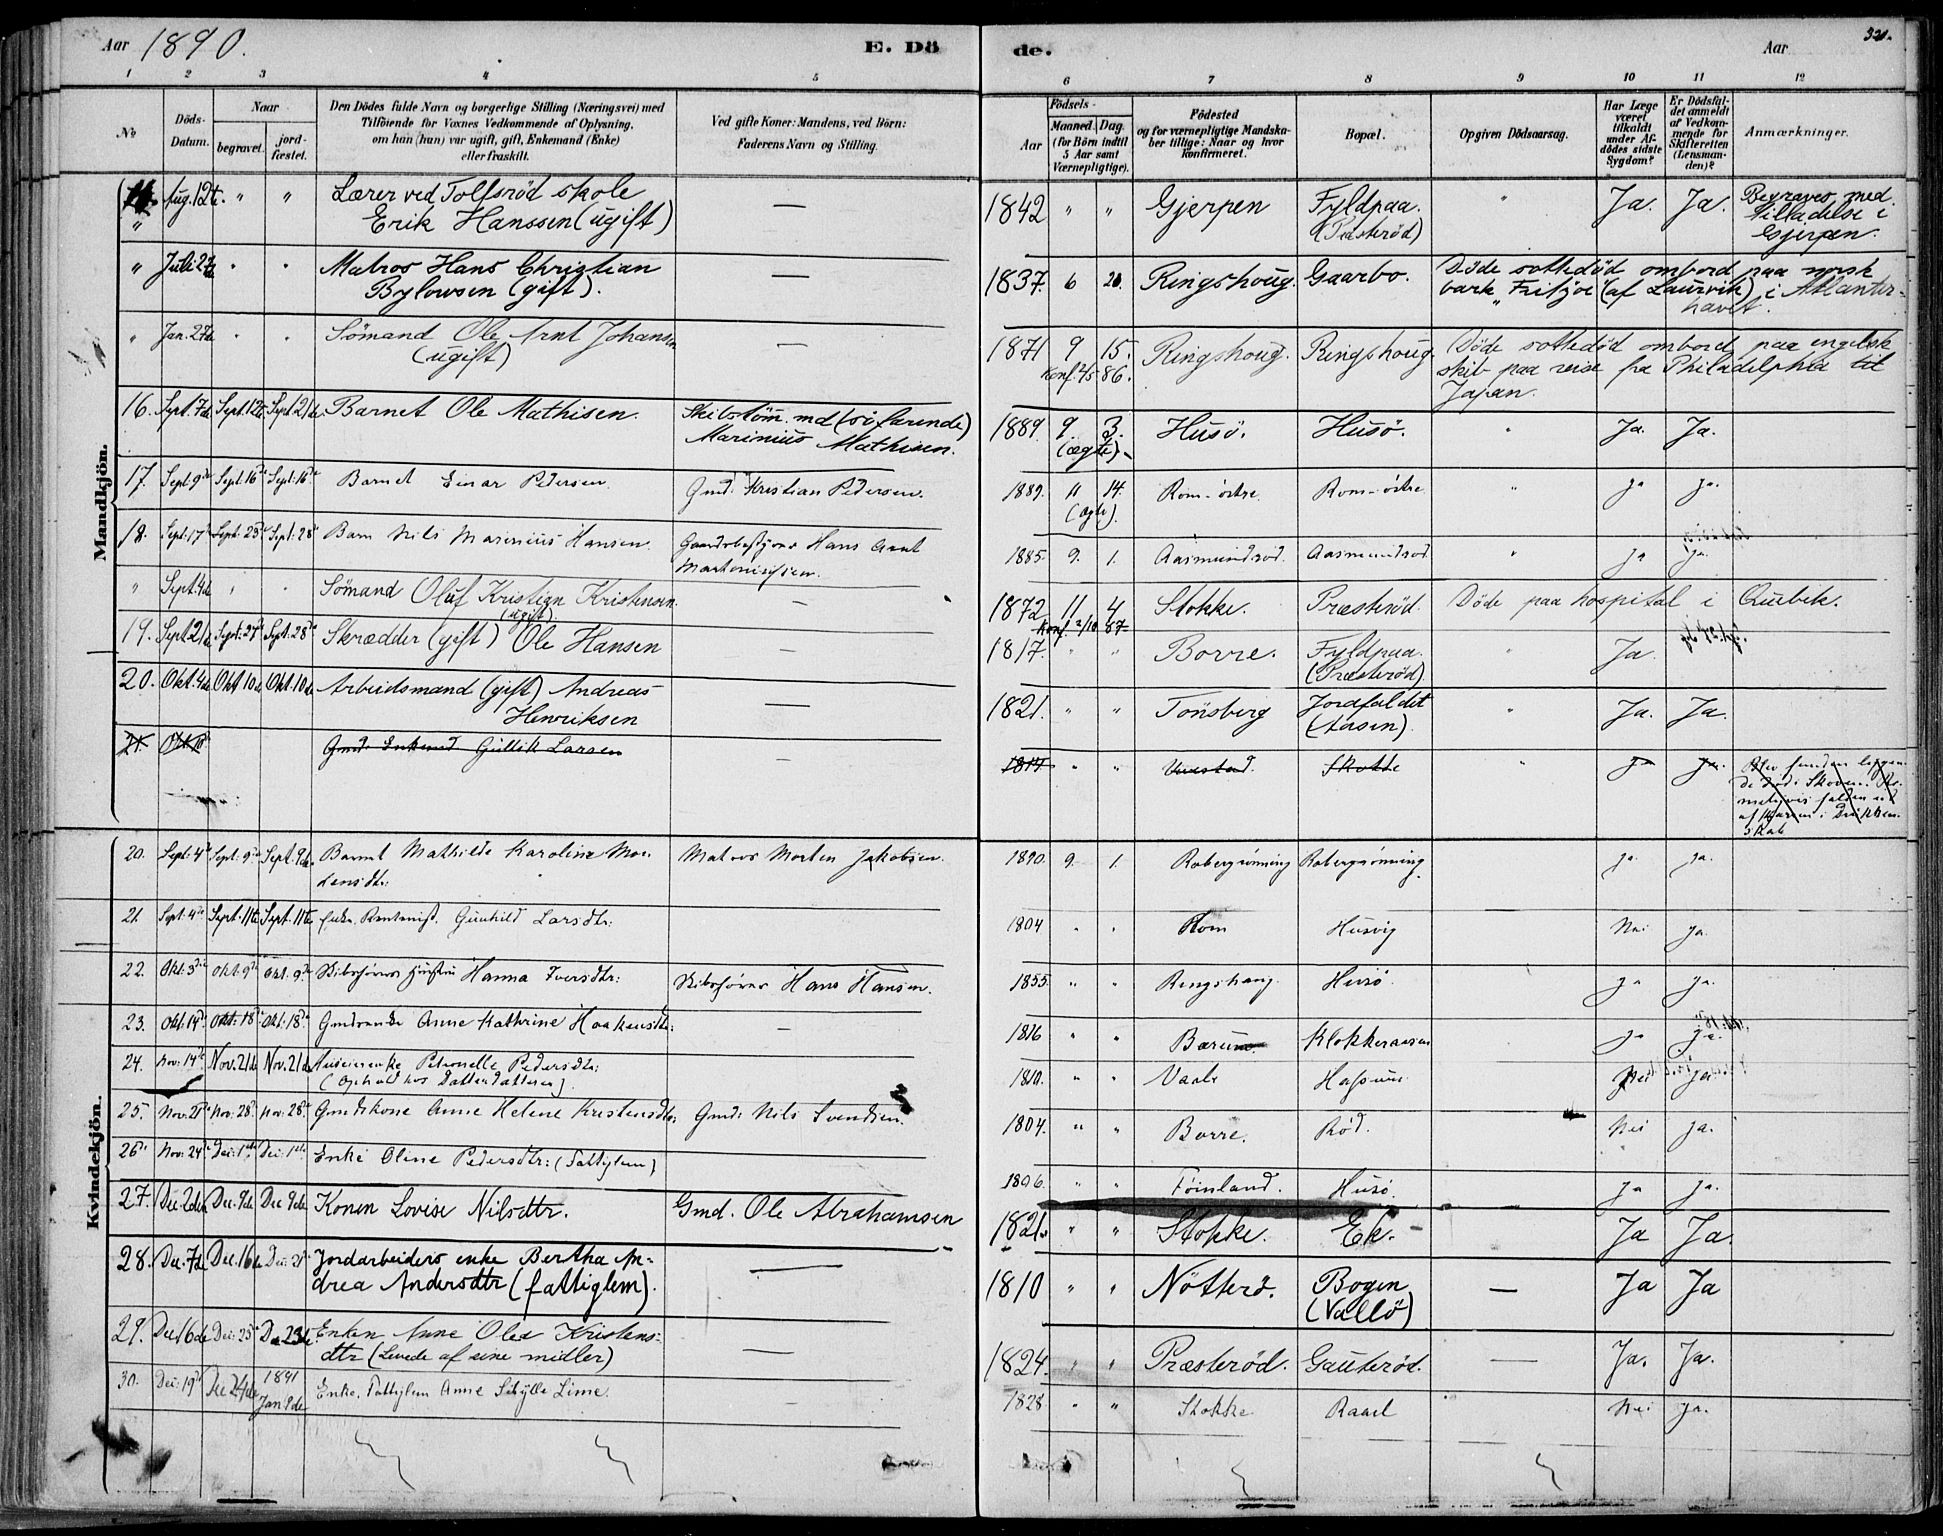 Aar 1890. E. Dö de. Aar 320.
1 2 3 4 5 6 7 8 9 10 11 12
No
Döds-Datum.
Naar
begravet. jordfæstet.
Den Dödes fulde Navn og borgerlige Stilling (Næringsvei) med
Tilföiende for Voxnes Vedkommende af Oplysning,
om han (hun) var ugift, gift, Enkemand (Enke)
eller fraskilt.
Ved gifte Koner: Mandens, ved Börn:
Faderens Navn og Stilling.
Födsels-
Aar Maaned. Dag.
(for Börn indtil
5 Aar samt
Værnepligtige).
Födested
og for værnepligtige Mandska-
ber tillige: Naar og hvor
konfirmeret.
Bopæl.
Opgiven Dödsaarsag.
Har Læge
været
tilkaldt
under Af-
dödes sidste
Sygdom?
Er Dödsfal-
det anmeldt
af Vedkom-
mende for
Skifteretten
(Lensman-
den)?
Anmærkninger.
Mandkjön.
" Aug. 12te. " " Lærer ved Tolfsröd skole — 1842 " " Gjerpen Fyldpaa. " Ja. Ja. Begraves med
Erik Hanssen (ugift) (Præsteröd) tilladelse i
Gjerpen.
" Juli 27de " " Matros Hans Christian — 1837. 6 20. Ringshoug. Gaarbo. Döde sottedöd ombord paa norsk
Bylowsen (gift). bark "Fritjoe" (af Laurvik) i Atlanter-
havet.
" Jan. 27de " " Sömand Ole Arnt Johansen — 1871 9 15. Ringshoug. Ringshoug. Döde sottedöd ombord paa engelsk
(ugift) Konf. 4/5 86. skib paa reise fra Philadelphia til
Japan.
16. Sept. 7de Sept. 12te Sept. 21de Barnet Ole Mathisen. Skibstömmd (söfarende) 1889. 9. 3. Husö. Husö. " Ja. Ja.
Marinius Mathisen. (ægte).
17. Sept: 9de Sept: 16de Sept: 16de Barnet Einar Pedersen. Gmd: Kristian Pedersen. 1889. 11 14. Rom-östre Rom-östre. " Ja Ja.
(ægte).
18. Sept: 17de Sept: 23de Sept: 28de Barn Nils Marinius Hansen. Gaardsbestyrer Hans Arnt 1885. 9. 1. Aasmundröd. Aasmundröd " Ja Ja.
" Sept. 4de " " Sömand Oluf Kristian Kristensen. — 1872 11 4 Stokke. Præsteröd. Döde paa hospital i Quebik.
(ugift). Konf. 2/10 87.
19. Sept. 21de Sept: 27de Sept: 28de Skrædder (gift) Ole Hansen — 1817. " " Borre. Fyldpaa. " Ja.
(Præsteröd)
20. Okt. 4de Okt. 10de Okt. 10de Arbeidsmand (gift) Andreas — 1821. " " Tönsberg Jordfaldet " Ja. Ja.
Henriksen (Aasen).
21. Okt. 10de Gmd: Enkemd Gullik Larsen 1814 " " Skotte " Ja Ja. Blev funden liggen-
de död i Skoven.
Kvindekjön.
20. Sept: 4de Sept: 9de Sept. 9de. Barnet Mathilde Karoline Mor- Matros Morten Jakobsen. 1890. 9. 1. Robergrönning Robergrönning. Ja. Ja.
tensdtr:
21. Sept: 4de Sept. 11te Sept. 11te Gunhild Larsdtr: 1804 " " Rom Husvig Nei Ja.
22. Okt. 3die Okt. 9de Okt. 9de Skibsförer Hanna Iversdtr: Skibsförer Hans Hansen. 1855 " " Ringshaug. Husö. Ja Ja.
23. Okt: 14de Okt: 18de Okt: 18de Anne Kathrine Haakensdtr: — 1816 " " Bærum Klokkeraasen Ja Ja.
24. Nov: 14de Nov. 21de Nov. 21de Petronelle Pedersdtr: 1810. " " Vaale Nei Ja
(Ophold hos Datterdatteren).
25. Nov. 21de Nov: 28de Nov: 28de Gmdskone Anne Helene Kristensdtr: Gmd: Nils Svendsen. 1804. " " Borre. Röd. Nei Ja.
26de Nov: 24de Dec: 1ste Dec: 1ste Enke Oline Pedersdtr: (Fattiglem) 1806. " " Föinland. Husö. Ja Ja.
27. Dec. 2den Dec. 9de Dec. 9de Konen Lovise Nilsdtr. Gmd. Ole Abrahamsen 1821. " " Stokke. Ek. — Ja Ja.
28. Dec. 7de Dec. 16de Dec: 21de Jordarbeiders enke Bertha An- — 1810 " " Nötterö. Bogen — Ja Ja
drea Andersdtr (fattiglem). (Vallö)
29. Dec. 16de Dec: 23de Dec. 23de Enken Anne Olea Kristens- — 1824. " " Præsteröd. Gauteröd. — Ja. Ja.
dtr (Levede af sine midler)
30. Dec: 19de Dec 24de 1891 Jan 9de Enke, Fattiglem Anne Sibylle Lime. — 1828 " " Stokke Raael Nei Ja.